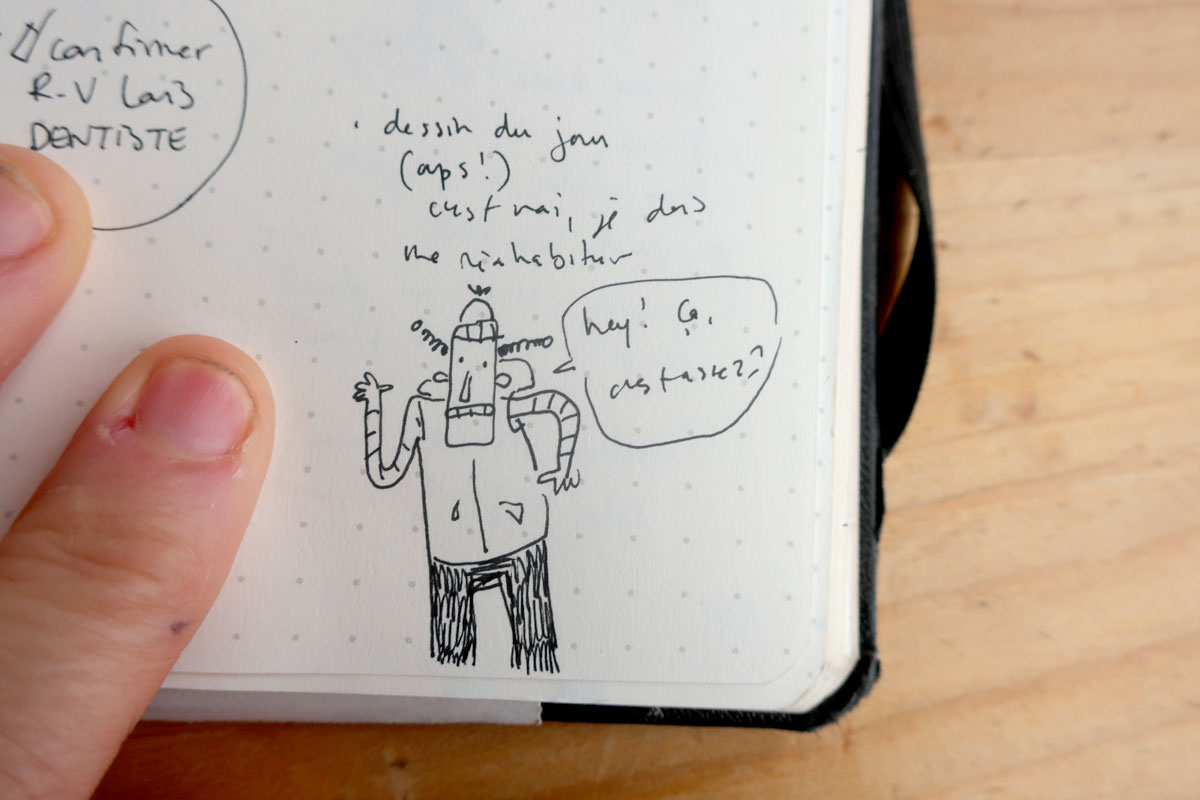 confirmer
R-V Loïs
DENTISTE
· dessin du jour
(oops!)
c'est vrai, je dois
me réhabituer
hey! Ça,
c'est assez??